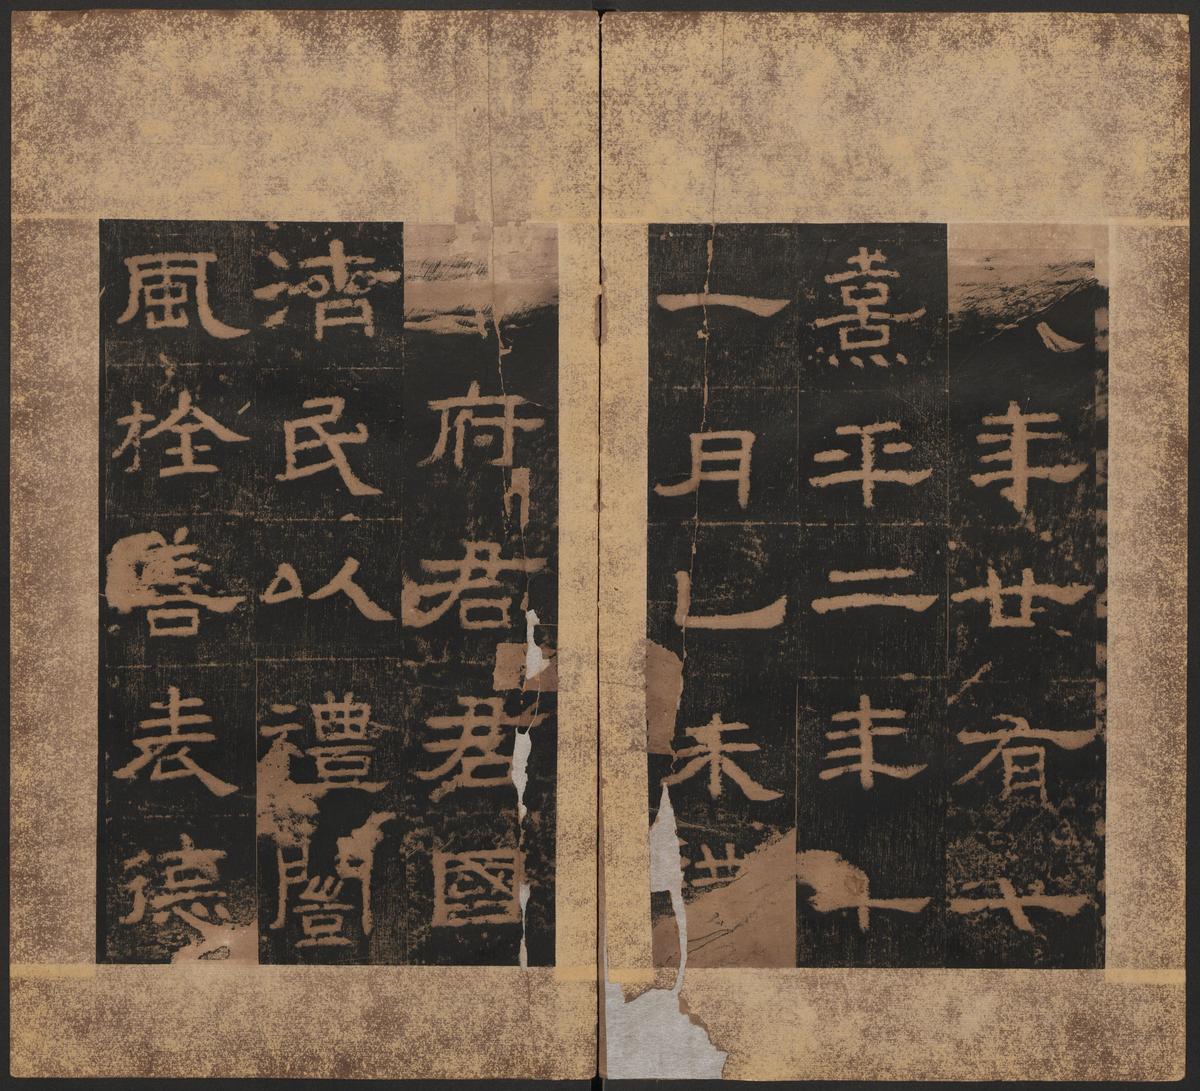 年廿有七
熹平二年十
一月乙未
府君君國
濟民以禮闓
風栓善表德